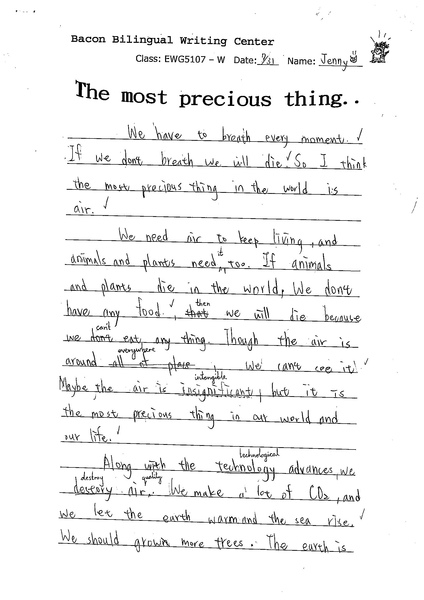 Bacon Bilingual Writing Center
Class: EWG5107 – W Date: 7/31 Name: Jenny
The most precious thing..
We have to breath every moment.
If we dont breath we will die. So I think
the most precious thing in the world is
air.
We need air to keep living, and
it
animals and plants need too. If animals
and plants die in the world, We don't
then
have any food, that we will die because
can't
we don't eat any thing. Though the air is
everywhere
around all of place, We can't see it!
intangible
Maybe, the air is insignificant, but it is
the most precious thing in our world and
our life.
technological
Along with the technology advances, we
destroy quality
destory air. We make a lot of CO2, and
we let the earth warm and the sea rise.
We should grown more trees. The earth is